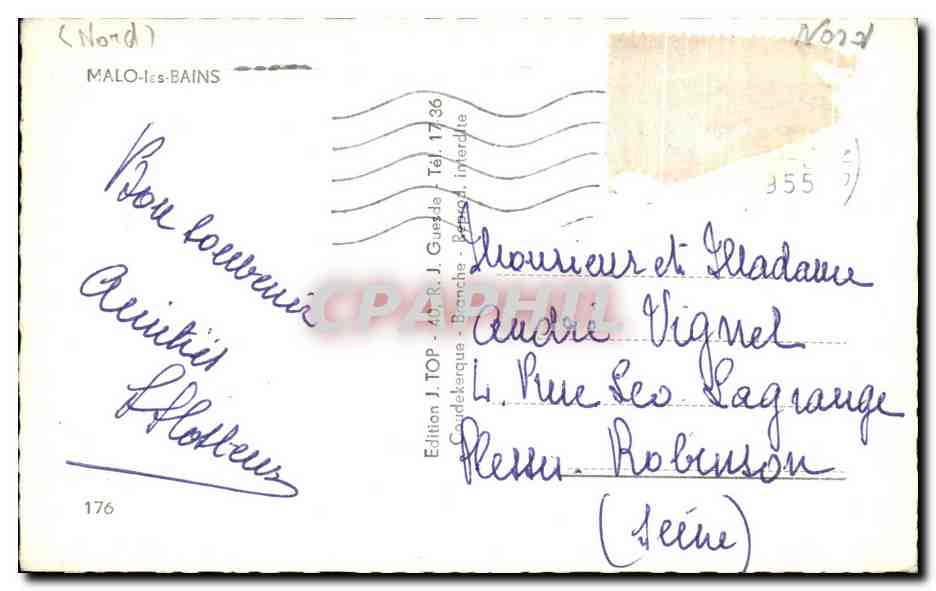 (Nord)
Nord
MALO-les-BAINS
955
Bon souvenir
Amitiés
Edition J. TOP - 40, R. J. Guesde - Tél. 17-36
Coudekerque - Branche - Reprod. interdite
CPAPHIL
Monsieur et Madame
André Vignel
4. Rue Leo Lagrange
Plessis. Robinson
(Seine)
176